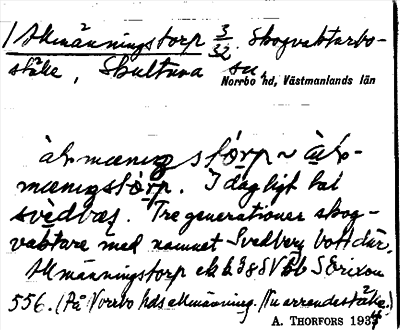 1 Allmänningstorp 3/32. Skogvaktarbo-
ställe, Skultuna sn,
Norrbo hd, Västmanlands län
àlmænıŋstórp ~ àl-
mænıŋstòrp. I dagligt tal
svèdbæɽ. Tre generationer skog-
vaktare med namnet Svedberg bott där.
Allmänningstorp 388 S Erixon
556. (På Norrbo hds allmänning. Nu arrendeställe.)
A. THORFORS 1934